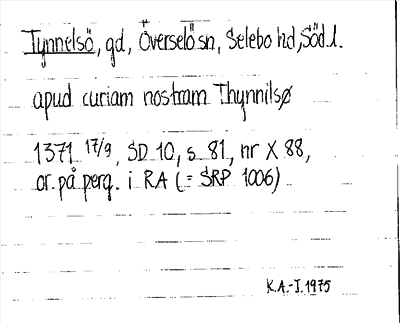 Tynnelsö, gd, Överselö sn, Selebo hd, Södl.
apud curiam nostram Thynnilsø
1371 17/9, SD 10, s. 81, nr X 88,
or. på perg. i RA (= SRP 1006)
K.A.-J. 1975